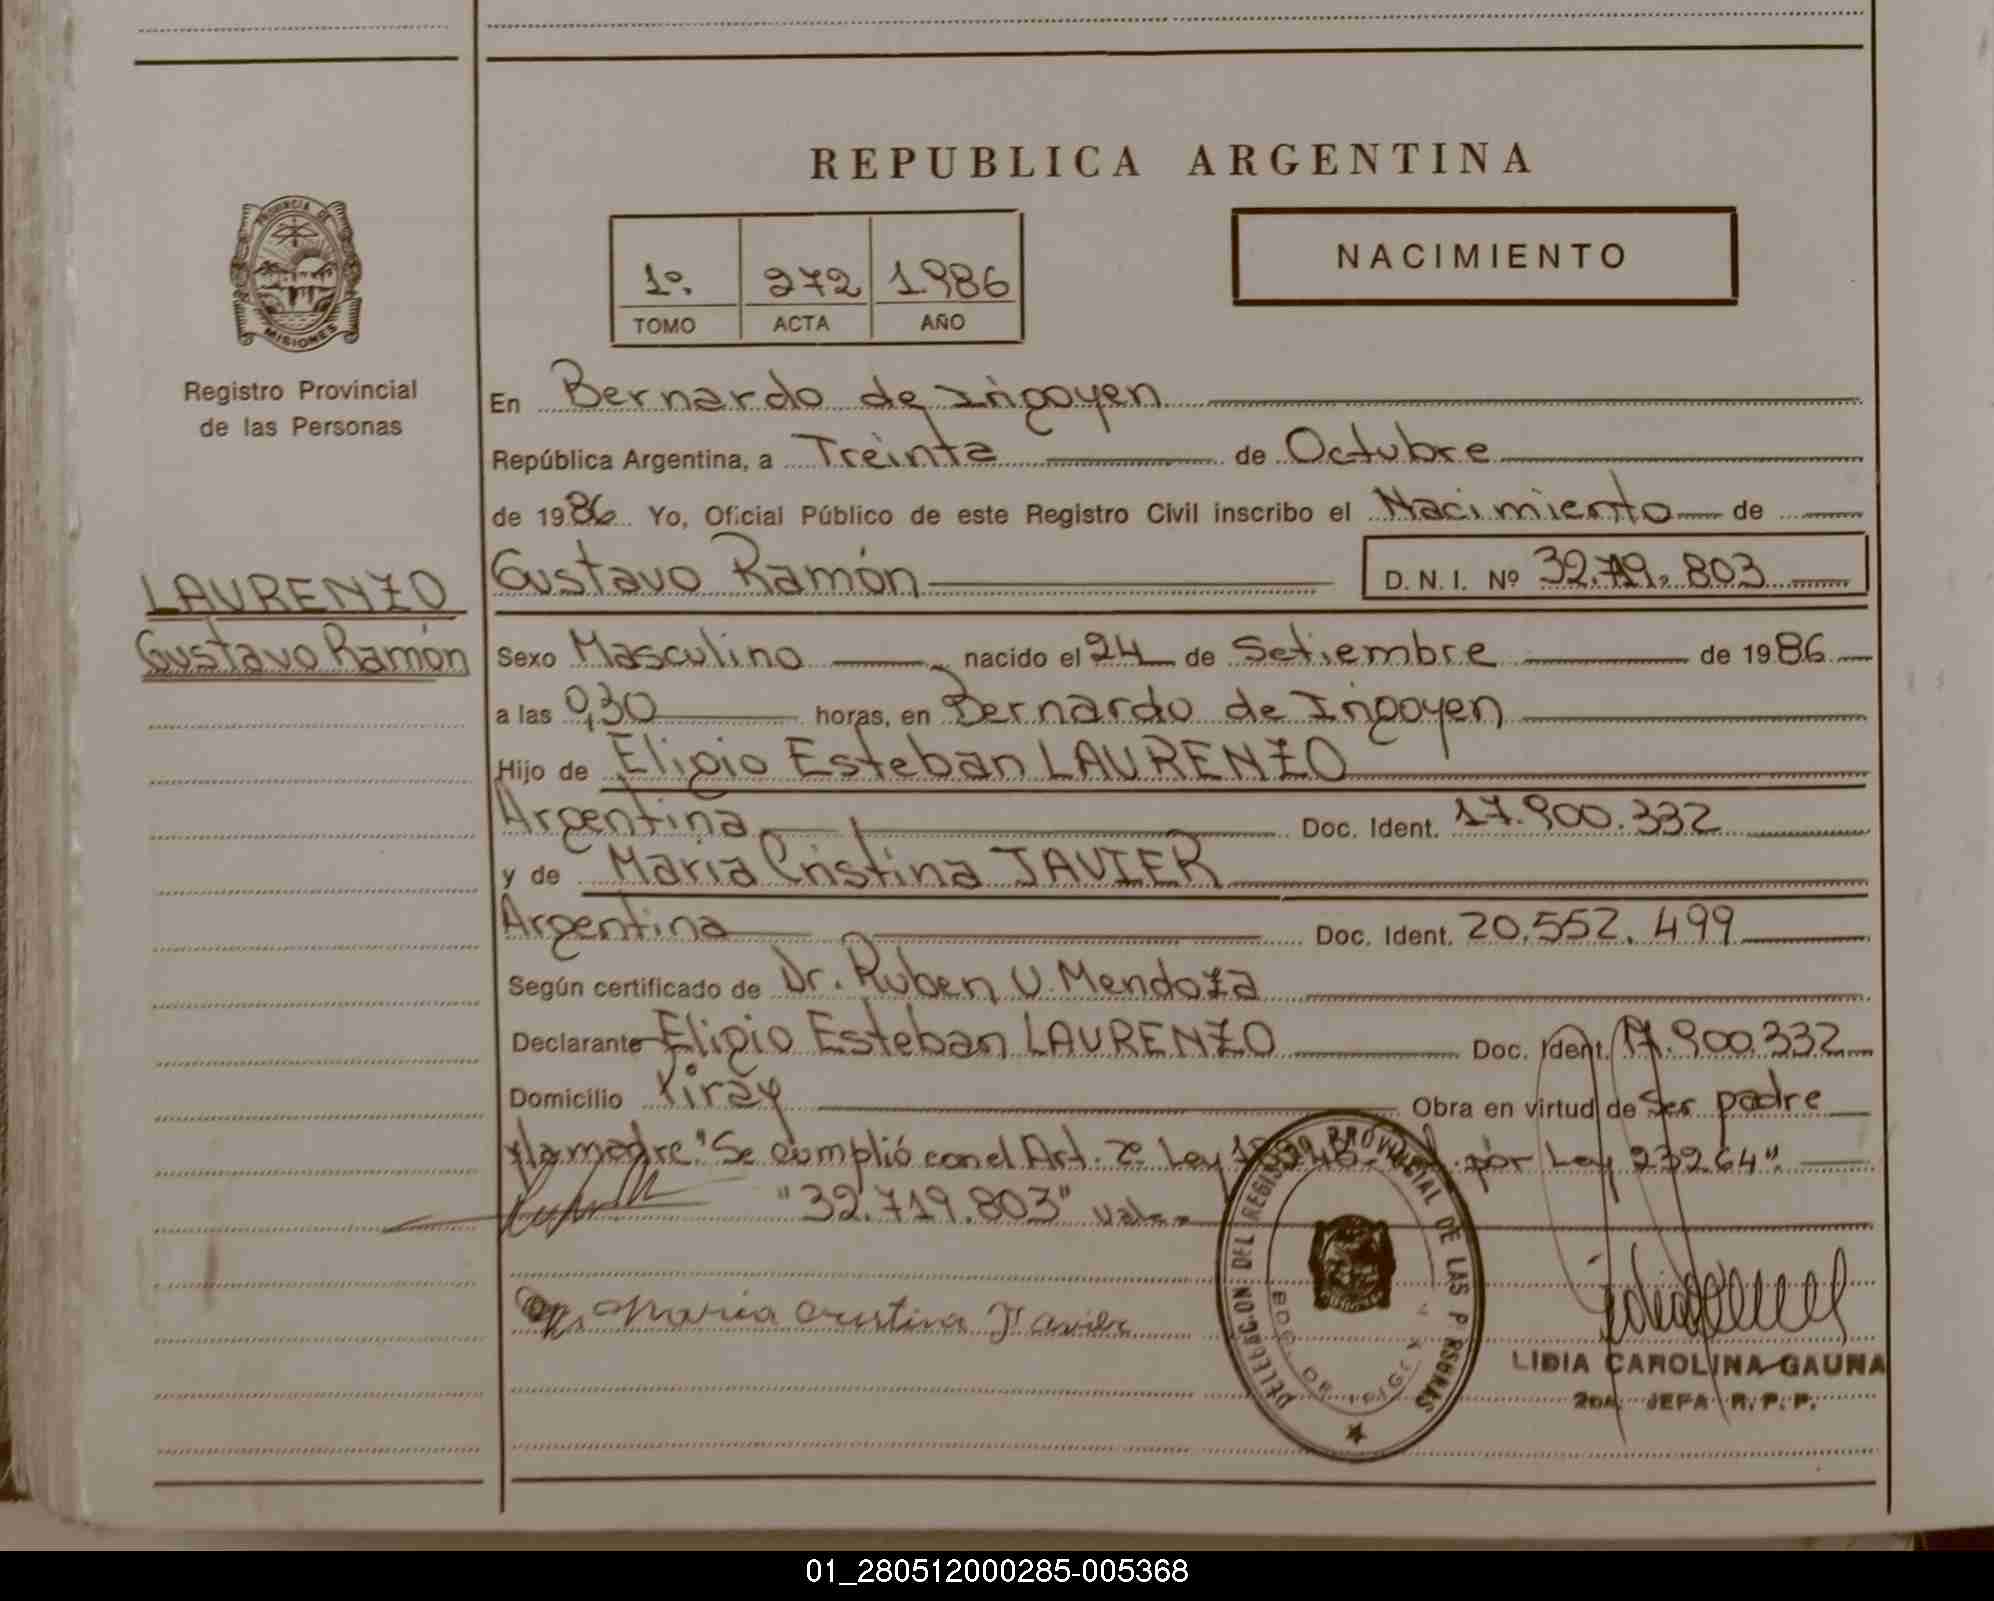 REPUBLICA ARGENTINA
PROVINCIA DE
MISIONES
Registro Provincial
de las Personas
1º. 272 1.986
TOMO ACTA AÑO
NACIMIENTO
En Bernardo de Irigoyen
República Argentina, a Treinta de Octubre
de 1986. Yo, Oficial Público de este Registro Civil inscribo el Nacimiento de
LAURENZO
Gustavo Ramón
Gustavo Ramón D. N. I. Nº 32.719.803
Sexo Masculino nacido el 24 de Setiembre de 1986
a las 0,30 horas, en Bernardo de Irigoyen
Hijo de Eligio Esteban LAURENZO
Argentina Doc. Ident. 17.900.332
y de Maria Cristina JAVIER
Argentina Doc. Ident. 20.552.499
Según certificado de Dr. Ruben U. Mendoza
Declarante Eligio Esteban LAURENZO Doc. Ident. 17.900.332
Domicilio Piray Obra en virtud de ser padre
y la madre. "Se cumplió con el Art. 2º Ley por Ley 23264".
"32.719.803" vale.
Maria Cristina Javier
DELEGACION DEL REGISTRO PROVINCIAL DE LAS PERSONAS
LIDIA CAROLINA GAUNA
2DA. JEFA R. P. P.
01_280512000285-005368